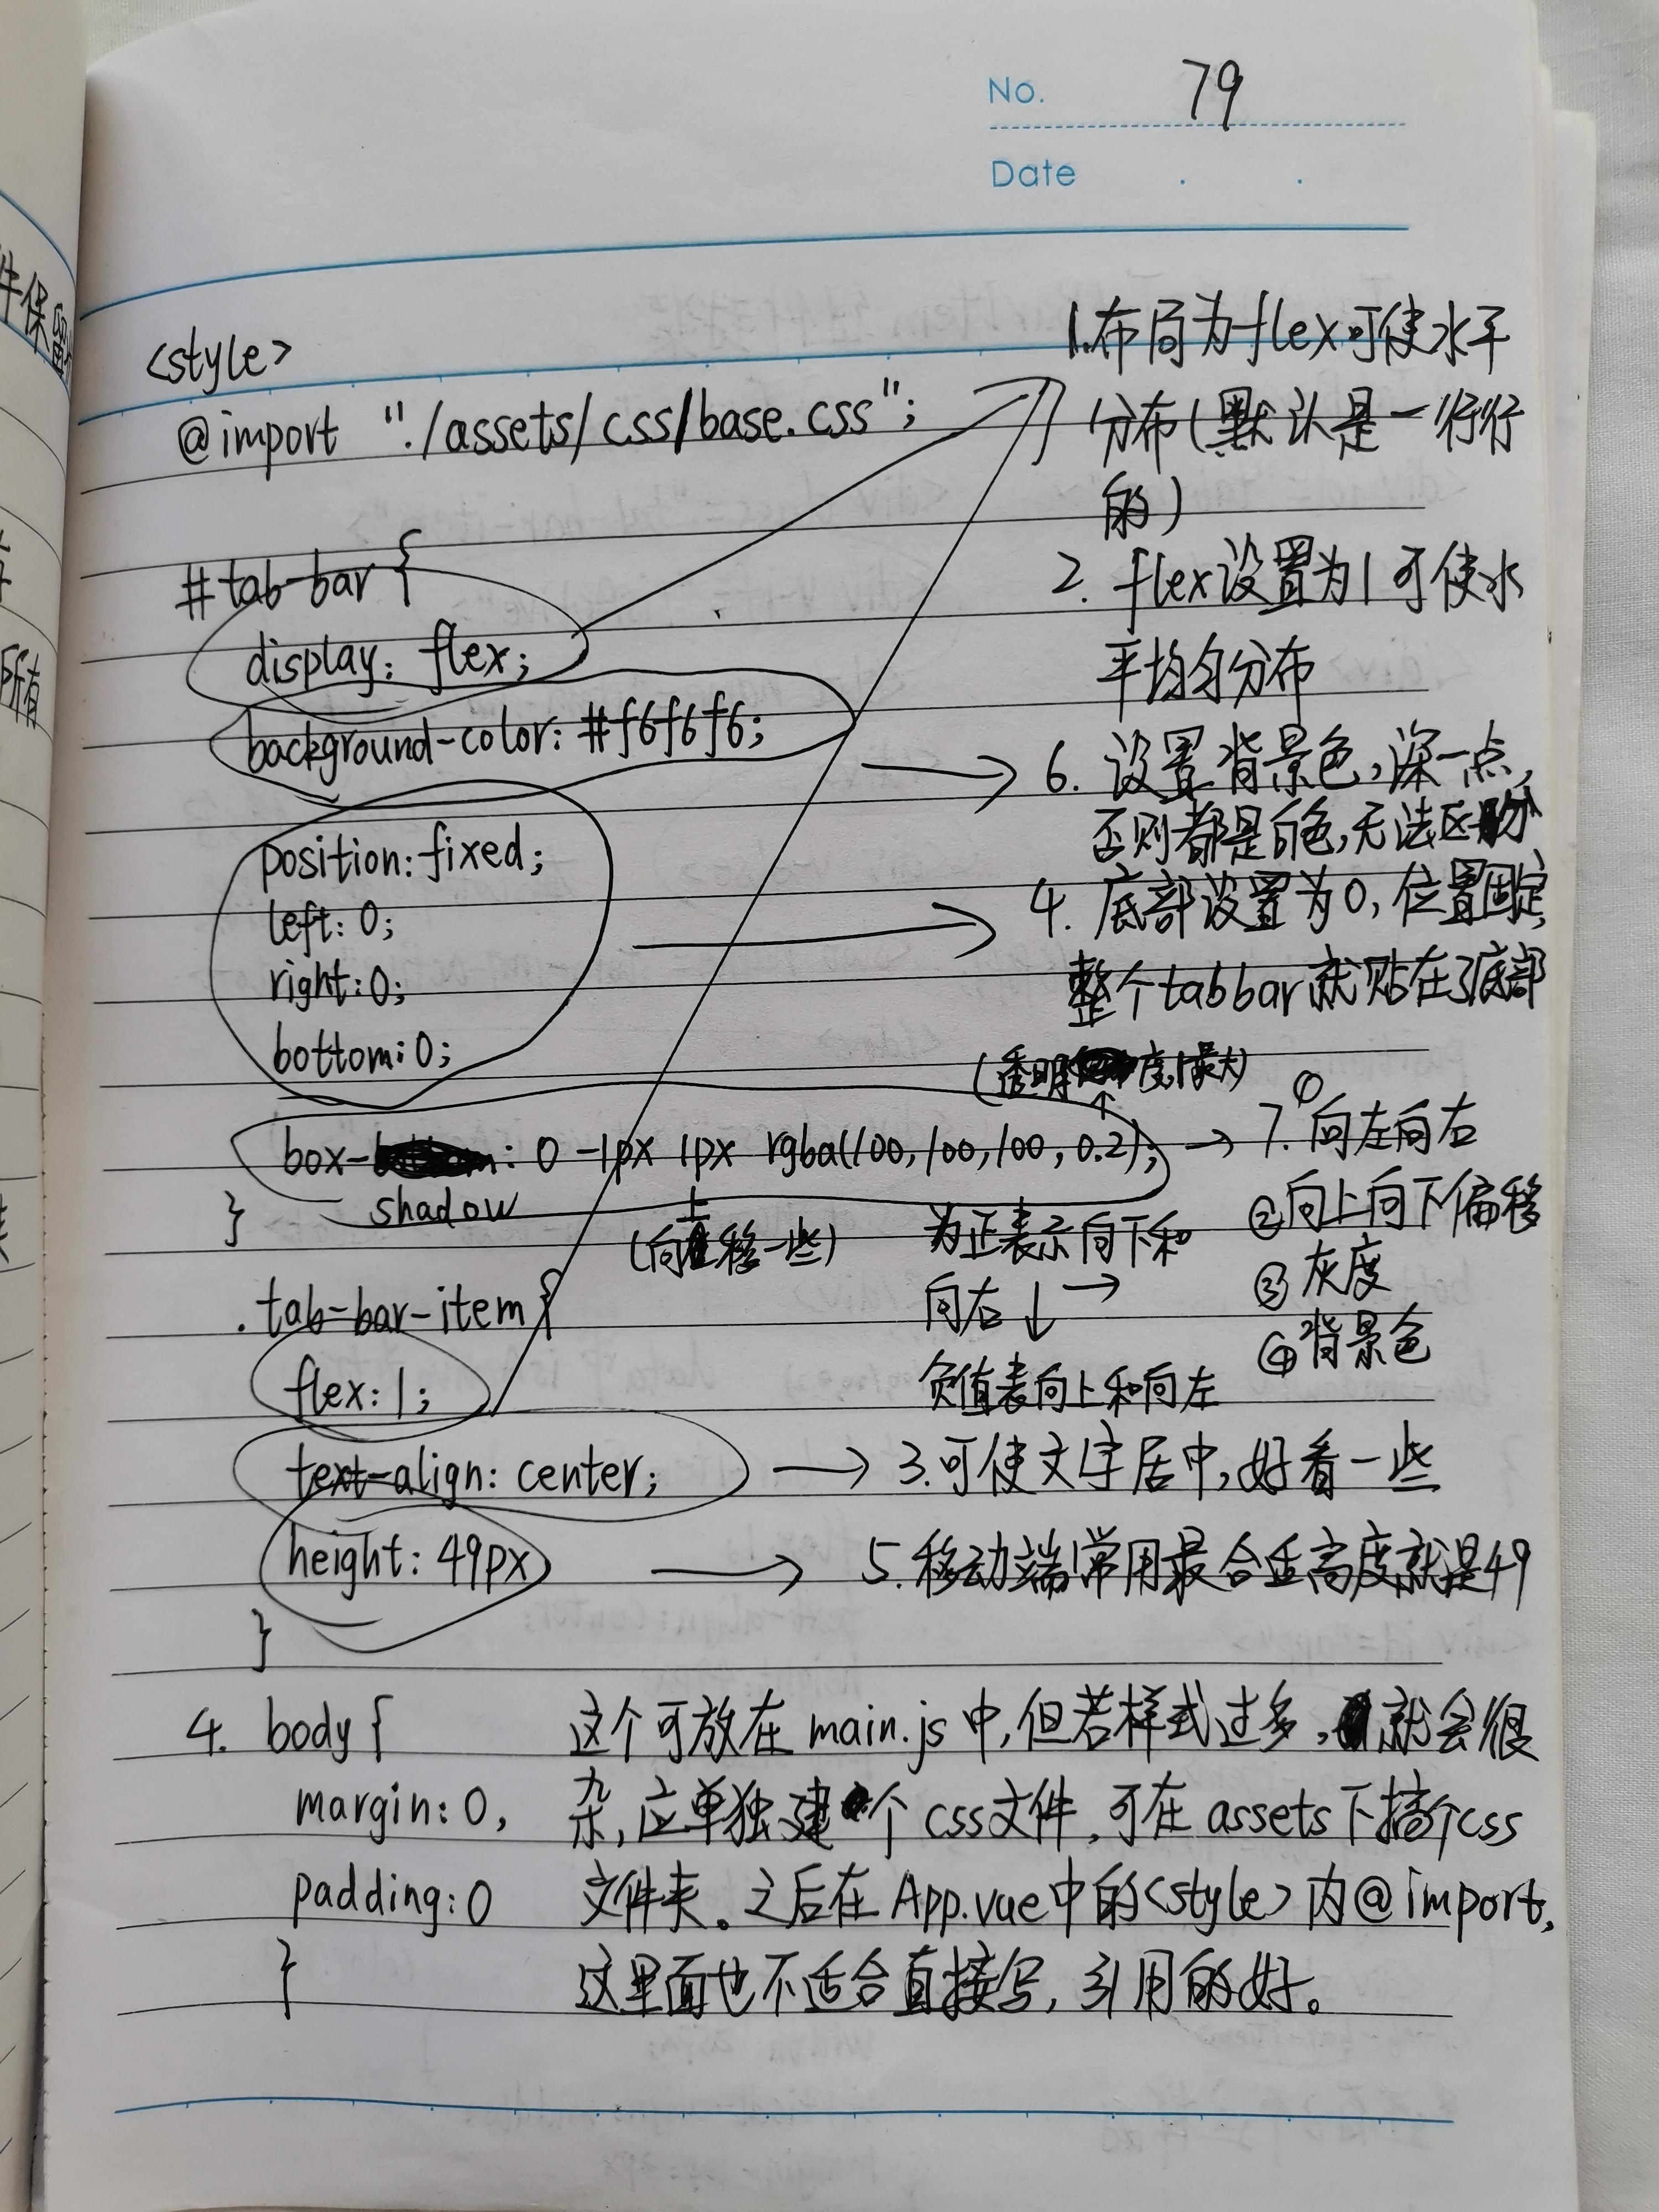 No. 79
Date
件保留
所有
<style>
@import "./assets/css/base.css";
#tab-bar {
display: flex;
background-color: #f6f6f6;
position: fixed;
left: 0;
right: 0;
bottom: 0;
box-shadow: 0 -1px 1px rgba(100, 100, 100, 0.2);
}
(向上移一些)
(透明度,1最大)
.tab-bar-item {
flex: 1;
text-align: center;
height: 49px
}
1.布局为flex可使水平
分布(默认是一行行
的)
2. flex设置为1可使水
平均匀分布
6. 设置背景色,深一点,
否则都是白色,无法区分
4. 底部设置为0, 位置固定,
整个tabbar就贴在了底部
7. ①向左向右
②向上向下偏移
③灰度
④背景色
为正表示向下和
向右 ↓ →
负值表向上和向左
3.可使文字居中,好看一些
5.移动端常用最合适高度就是49
4. body { 这个可放在 main.js 中,但若样式过多,就会很
margin: 0, 杂,应单独建个 css文件,可在 assets下搞个css
padding: 0 文件夹。之后在 App.vue中的<style>内@import,
} 这里面也不适合直接写, 引用的好。